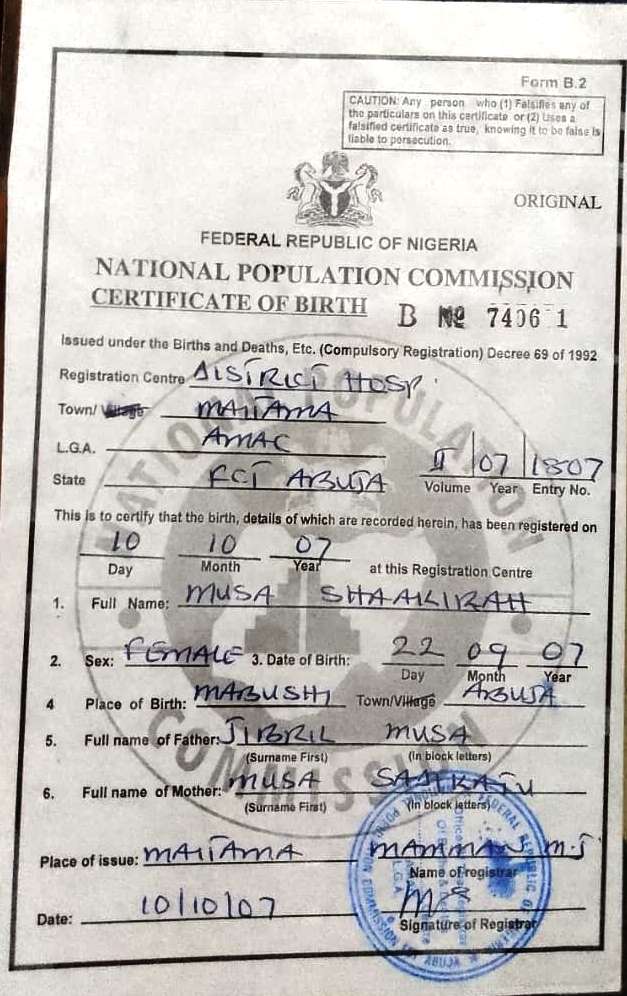 Form B.2
CAUTION: Any person who (1) Falsifies any of
the particulars on this certificate or (2) Uses a
falsified certificate as true, knowing it to be false is
liable to persecution.
ORIGINAL
FEDERAL REPUBLIC OF NIGERIA
NATIONAL POPULATION COMMISSION
CERTIFICATE OF BIRTH B No 74061
Issued under the Births and Deaths, Etc. (Compulsory Registration) Decree 69 of 1992
Registration Centre DISTRICT HOSP.
Town/Village MAITAMA
L.G.A. AMAC
State FCT ABUJA II 07 1807
Volume Year Entry No.
This is to certify that the birth, details of which are recorded herein, has been registered on
10 10 07
Day Month Year at this Registration Centre
1. Full Name: MUSA SHAAKIRAH
2. Sex: FEMALE 3. Date of Birth: 22 09 07
Day Month Year
4 Place of Birth: MABUSHI Town/Village ABUJA
5. Full name of Father: JIBRIL MUSA
(Surname First) (In block letters)
6. Full name of Mother: MUSA
(Surname First) (In block letters)
Place of issue: MAITAMA MAMMAN M.J
Name of registrar
Date: 10/10/07
Signature of Registrar
NATIONAL POPULATION COMMISSION